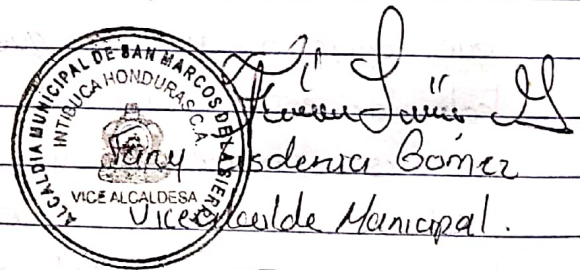 ALCALDIA MUNICIPAL DE SAN MARCOS DE LA SIERRA
INTIBUCA HONDURAS C.A.
VICE ALCALDESA
Gómez
Vicealcalde Municipal.